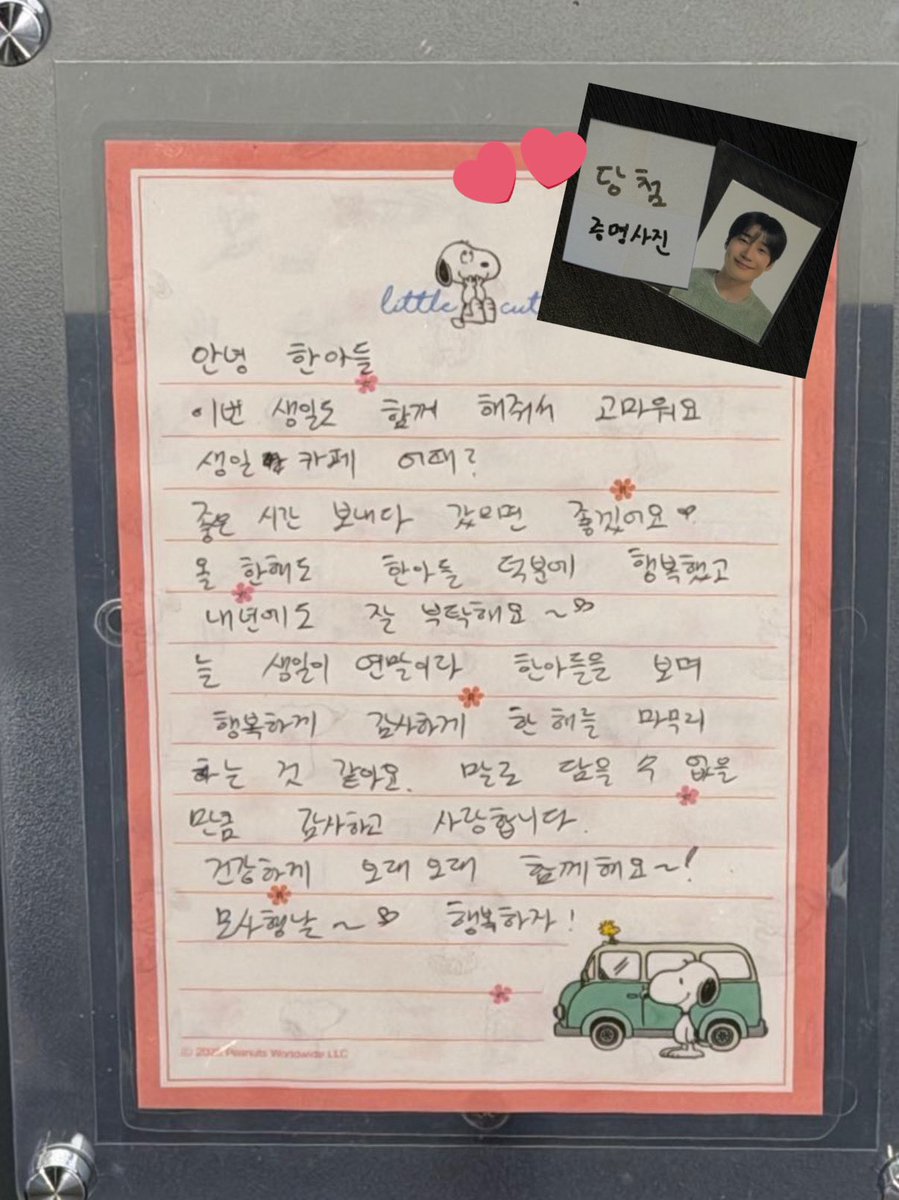 당첨
증명사진
little cut
안녕 한아들
이번 생일도 함께 해줘서 고마워요
생일 카페 어때?
좋은 시간 보내다 갔으면 좋겠어요
올 한해도 한아들 덕분에 행복했고
내년에도 잘 부탁해요~
늘 생일이 연말이라 한아들을 보며
행복하게 감사하게 한 해를 마무리
하는 것 같아요. 말로 담을 수 없을
만큼 감사하고 사랑합니다.
건강하게 오래오래 함께해요~!
모사행날~ 행복하자!
© Peanuts Worldwide LLC